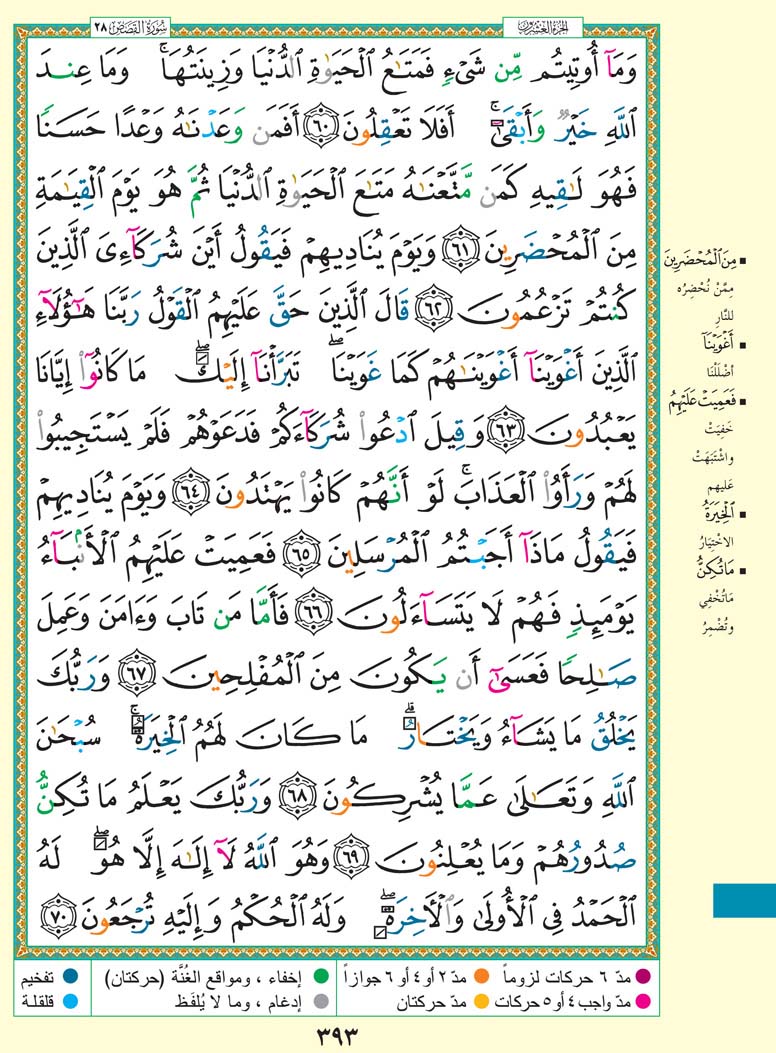 الجزء العشرون
سورة القصص ٢٨
وَمَآ أُوتِيتُم مِّن شَىْءٍ فَمَتَٰعُ ٱلْحَيَوٰةِ ٱلدُّنْيَا وَزِينَتُهَا ۚ وَمَا عِندَ
ٱللَّهِ خَيْرٌ وَأَبْقَىٰٓ ۚ أَفَلَا تَعْقِلُونَ ٦٠ أَفَمَن وَعَدْنَٰهُ وَعْدًا حَسَنًا
فَهُوَ لَٰقِيهِ كَمَن مَّتَّعْنَٰهُ مَتَٰعَ ٱلْحَيَوٰةِ ٱلدُّنْيَا ثُمَّ هُوَ يَوْمَ ٱلْقِيَٰمَةِ
مِنَ ٱلْمُحْضَرِينَ ٦١ وَيَوْمَ يُنَادِيهِمْ فَيَقُولُ أَيْنَ شُرَكَآءِىَ ٱلَّذِينَ
كُنتُمْ تَزْعُمُونَ ٦٢ قَالَ ٱلَّذِينَ حَقَّ عَلَيْهِمُ ٱلْقَوْلُ رَبَّنَا هَٰٓؤُلَآءِ
ٱلَّذِينَ أَغْوَيْنَآ أَغْوَيْنَٰهُمْ كَمَا غَوَيْنَا ۖ تَبَرَّأْنَآ إِلَيْكَ ۖ مَا كَانُوٓا۟ إِيَّانَا
يَعْبُدُونَ ٦٣ وَقِيلَ ٱدْعُوا۟ شُرَكَآءَكُمْ فَدَعَوْهُمْ فَلَمْ يَسْتَجِيبُوا۟
لَهُمْ وَرَأَوُا۟ ٱلْعَذَابَ ۚ لَوْ أَنَّهُمْ كَانُوا۟ يَهْتَدُونَ ٦٤ وَيَوْمَ يُنَادِيهِمْ
فَيَقُولُ مَاذَآ أَجَبْتُمُ ٱلْمُرْسَلِينَ ٦٥ فَعَمِيَتْ عَلَيْهِمُ ٱلْأَنۢبَآءُ
يَوْمَئِذٍ فَهُمْ لَا يَتَسَآءَلُونَ ٦٦ فَأَمَّا مَن تَابَ وَءَامَنَ وَعَمِلَ
صَٰلِحًا فَعَسَىٰٓ أَن يَكُونَ مِنَ ٱلْمُفْلِحِينَ ٦٧ وَرَبُّكَ
يَخْلُقُ مَا يَشَآءُ وَيَخْتَارُ ۗ مَا كَانَ لَهُمُ ٱلْخِيَرَةُ ۚ سُبْحَٰنَ
ٱللَّهِ وَتَعَٰلَىٰ عَمَّا يُشْرِكُونَ ٦٨ وَرَبُّكَ يَعْلَمُ مَا تُكِنُّ
صُدُورُهُمْ وَمَا يُعْلِنُونَ ٦٩ وَهُوَ ٱللَّهُ لَآ إِلَٰهَ إِلَّا هُوَ ۖ لَهُ
ٱلْحَمْدُ فِى ٱلْأُولَىٰ وَٱلْءَاخِرَةِ ۖ وَلَهُ ٱلْحُكْمُ وَإِلَيْهِ تُرْجَعُونَ ٧٠
▪ مِنَ ٱلْمُحْضَرِينَ
مِمَّنْ نُحْضِرُه
للنَّارِ
▪ أَغْوَيْنَآ
أَضْلَلْنَا
▪ فَعَمِيَتْ عَلَيْهِمُ
خَفِيَتْ
واشْتَبَهَتْ
عَليهم
▪ ٱلْخِيَرَةُ
الاخْتِيَارُ
▪ مَا تُكِنُّ
مَا تُخْفِي
وتُضْمِرُ
● مدّ ٦ حركات لزوماً ● مدّ ٢ أو ٤ أو ٦ جوازاً
● مدّ واجب ٤ أو ٥ حركات ● مدّ حركتان
● إخفاء ، ومواقع الغُنَّة (حركتان) ● تفخيم
● إدغام ، وما لا يُلفَظ ● قلقلة
٣٩٣